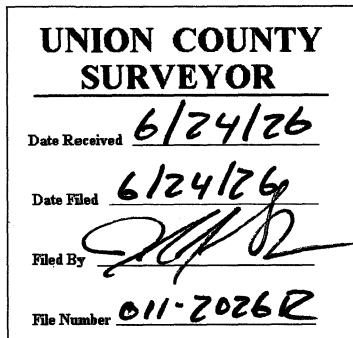 UNION COUNTY
SURVEYOR
Date Received 6/24/26
Date Filed 6/24/26
Filed By
File Number 011-2026R